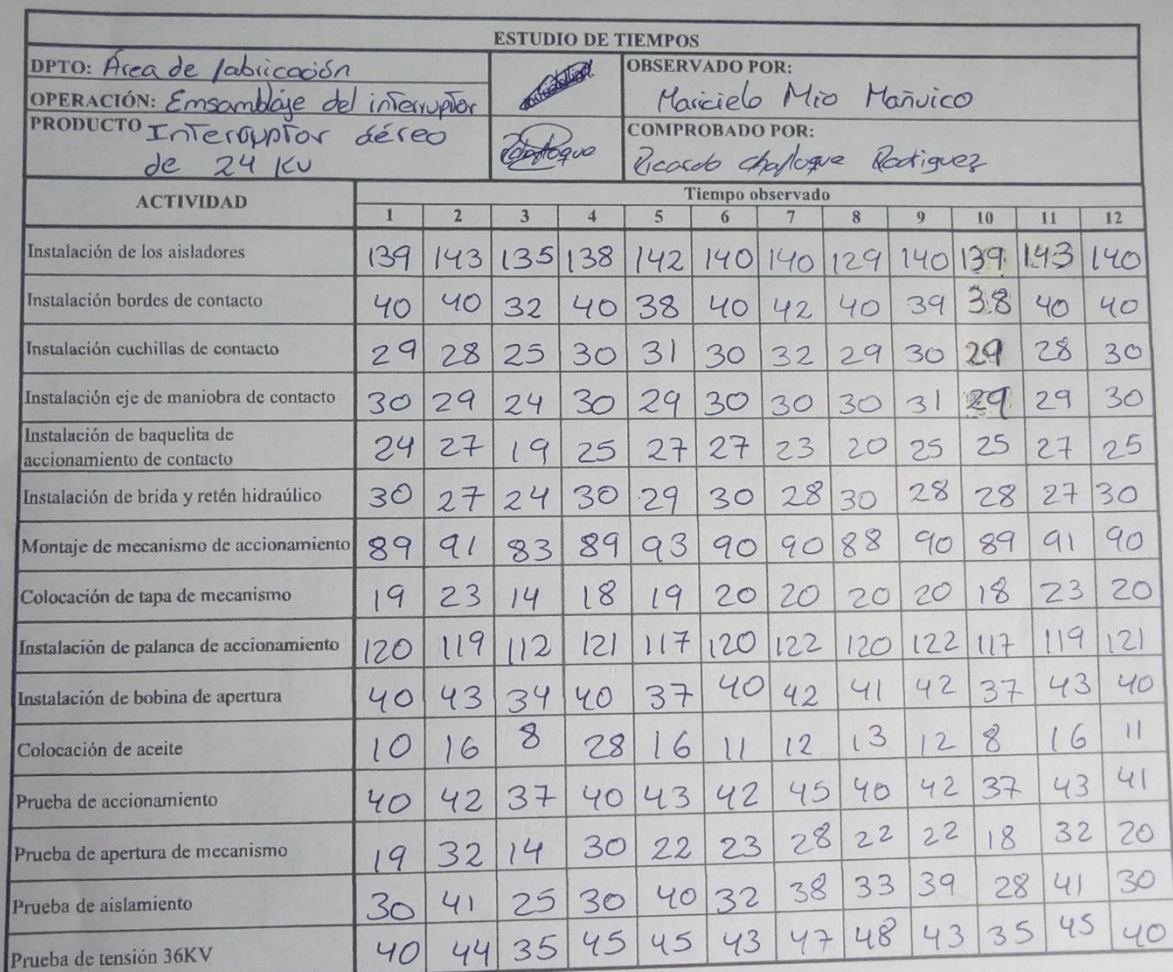 ESTUDIO DE TIEMPOS
DPTO: Área de fabricación
OPERACIÓN: Emsamblaje del interruptor
PRODUCTO Interruptor aéreo
de 24 KV
OBSERVADO POR:
Maricielo Mio Mañuico
COMPROBADO POR:
Ricardo Chafloque Rodriguez
ACTIVIDAD Tiempo observado
1 2 3 4 5 6 7 8 9 10 11 12
Instalación de los aisladores 139 143 135 138 142 140 140 129 140 139 143 140
Instalación bordes de contacto 40 40 32 40 38 40 42 40 39 38 40 40
Instalación cuchillas de contacto 29 28 25 30 31 30 32 29 30 29 28 30
Instalación eje de maniobra de contacto 30 29 24 30 29 30 30 30 31 29 29 30
Instalación de baquelita de
accionamiento de contacto 24 27 19 25 27 27 23 20 25 25 27 25
Instalación de brida y retén hidraúlico 30 27 24 30 29 30 28 30 28 28 27 30
Montaje de mecanismo de accionamiento 89 91 83 89 93 90 90 88 90 89 91 90
Colocación de tapa de mecanismo 19 23 14 18 19 20 20 20 20 18 23 20
Instalación de palanca de accionamiento 120 119 112 121 117 120 122 120 122 117 119 121
Instalación de bobina de apertura 40 43 34 40 37 40 42 41 42 37 43 40
Colocación de aceite 10 16 8 28 16 11 12 13 12 8 16 11
Prueba de accionamiento 40 42 37 40 43 42 45 40 42 37 43 41
Prueba de apertura de mecanismo 19 32 14 30 22 23 28 22 22 18 32 20
Prueba de aislamiento 30 41 25 30 40 32 38 33 39 28 41 30
Prueba de tensión 36KV 40 44 35 45 45 43 47 48 43 35 45 40